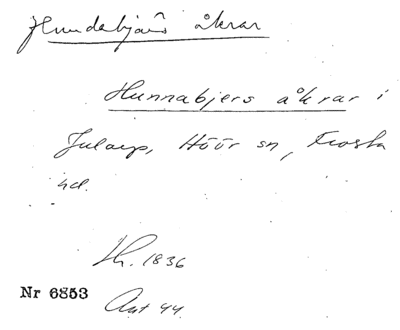 Hundabjärs åkrar
Hunnabjers åkrar i
Jularp, Höör sn, Frosta
hd.
Lh. 1836
Nr 6853
Ant 44